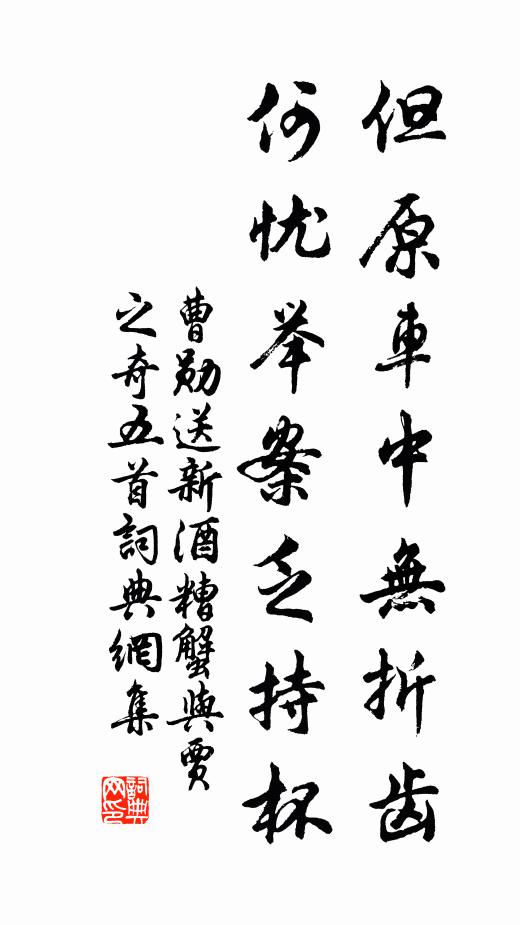 但原車中無折齿
何忧举案乏持杯
曹勋送新酒糟蟹與賈
之奇五首詞典網集
詞典网印